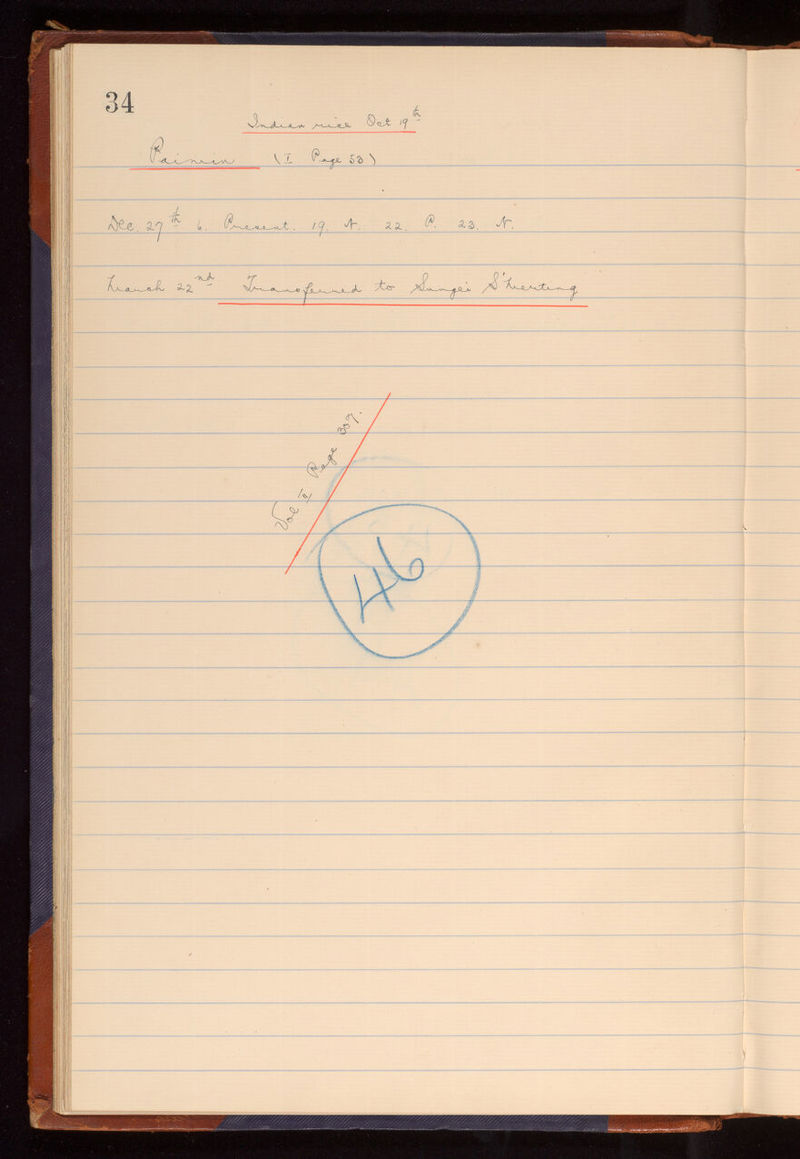 34
Indian rice Oct 19th
Paimin (I Page 53)
Dec. 27th 6. Present. 19. N. 22. P. 23. N.
March 22nd Transferred to Sungei
Vol II Page 307.
46